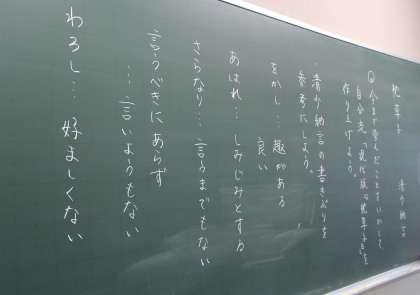 枕草子　清少納言
◎今まで学んだことをいかして
自分流「現代版枕草子」を
作り上げよう。
・清少納言の書きぶりを
参考にしよう。
をかし…趣がある
良い
あはれ…しみじみとする
さらなり…言うまでもない
言うべきにあらず
…言いようもない
わろし…好ましくない